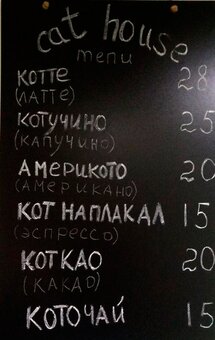 cat house
menu
КОТТЕ 28
(ЛАТТЕ)
КОТУЧИНО 25
(КАПУЧИНО)
АМЕРИКОТО 20
(АМЕРИКАНО)
КОТ НАПЛАКАЛ 15
(ЭСПРЕССО)
КОТКАО 20
(КАКАО)
КОТОЧАЙ 15